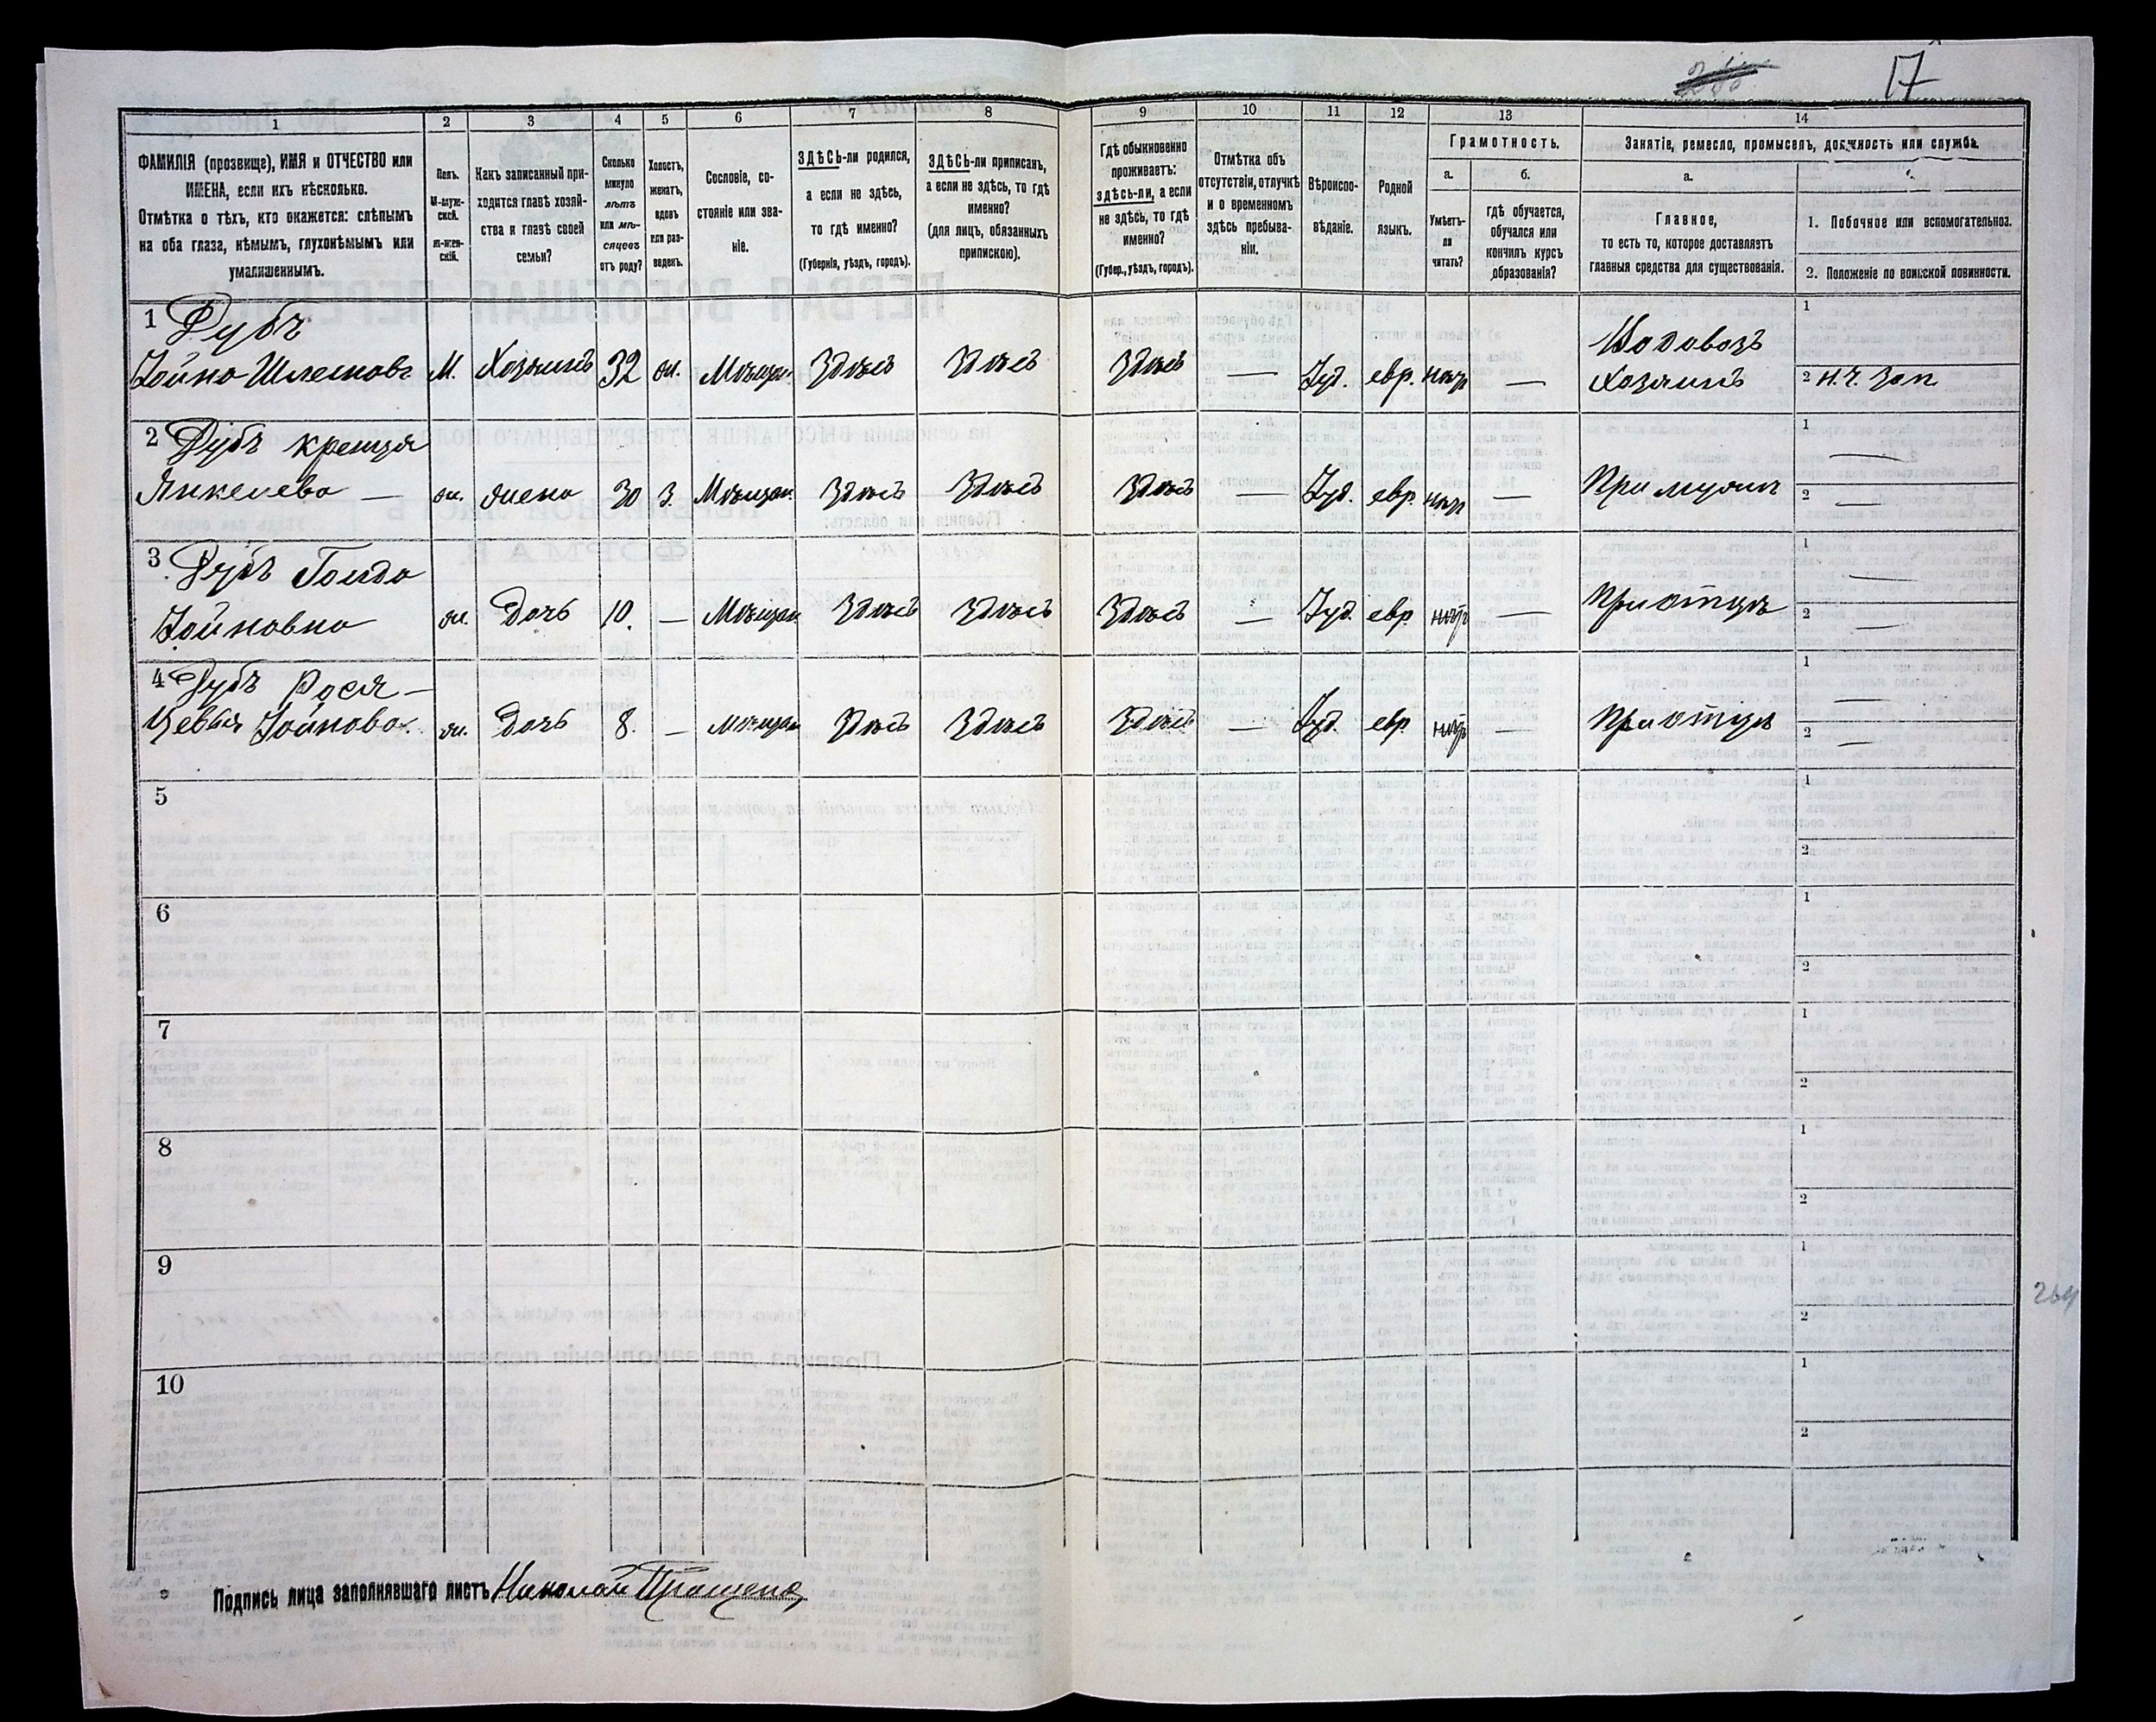 17
1
2
3
4
5
6
7
8
9
10
11
12
13
14
ФАМИЛІЯ (прозвище), ИМЯ и ОТЧЕСТВО или
ИМЕНА, если ихъ нѣсколько.
Отмѣтка о тѣхъ, кто окажется: слѣпымъ
на оба глаза, нѣмымъ, глухонѣмымъ или
умалишеннымъ.
Полъ.
М-муж-
ской.
ж-жен-
скій.
Какъ записанный при-
ходится главѣ хозяй-
ства и главѣ своей
семьи?
Сколько
минуло
лѣтъ
или мѣ-
сяцевъ
отъ роду?
Холостъ,
женатъ,
вдовъ
или раз-
веденъ.
Сословіе, со-
стояніе или зва-
ніе.
ЗДѢСЬ-ли родился,
а если не здѣсь,
то гдѣ именно?
(Губернія, уѣздъ, городъ).
ЗДѢСЬ-ли приписанъ,
а если не здѣсь, то гдѣ
именно?
(для лицъ, обязанныхъ
припискою).
Гдѣ обыкновенно
проживаетъ:
здѣсь-ли, а если
не здѣсь, то гдѣ
именно?
(Губер., уѣздъ, городъ).
Отмѣтка объ
отсутствіи, отлучкѣ
и о временномъ
здѣсь пребыва-
ніи.
Вѣроиспо-
вѣданіе.
Родной
языкъ.
Грамотность.
а.
Умѣетъ-
ли
читать?
б.
гдѣ обучается,
обучался или
кончилъ курсъ
образованія?
Занятіе, ремесло, промыселъ, должность или служба.
а.
Главное,
то есть то, которое доставляетъ
главныя средства для существованія.
1. Побочное или вспомогательное.
2. Положеніе по воинской повинности.
1 Дубъ
Хойна Шлемовъ М. Хозяинъ 32 ж. Мѣщан. Здѣсь Здѣсь Здѣсь — Іуд. евр. нѣтъ — Водовозъ
Хозяинъ
1
2 н. ч. зап.
2 Дубъ Крейндя
Янкелева — ж. жена 30 з. Мѣщан. Здѣсь Здѣсь Здѣсь — Іуд. евр. нѣтъ — При мужѣ
1 —
2 —
3 Дубъ Голда
Хойновна ж. Дочь 10. — Мѣщан. Здѣсь Здѣсь Здѣсь — Іуд. евр. нѣтъ — При отцѣ
1 —
2 —
4 Дубъ Рося-
Цевья Хойнова. ж. Дочь 8. — Мѣщан. Здѣсь Здѣсь Здѣсь — Іуд. евр. нѣтъ — При отцѣ
1 —
2 —
5
1
2
6
1
2
7
1
2
8
1
2
9
1
2
264
10
1
2
Подпись лица заполнявшаго листъ Николай